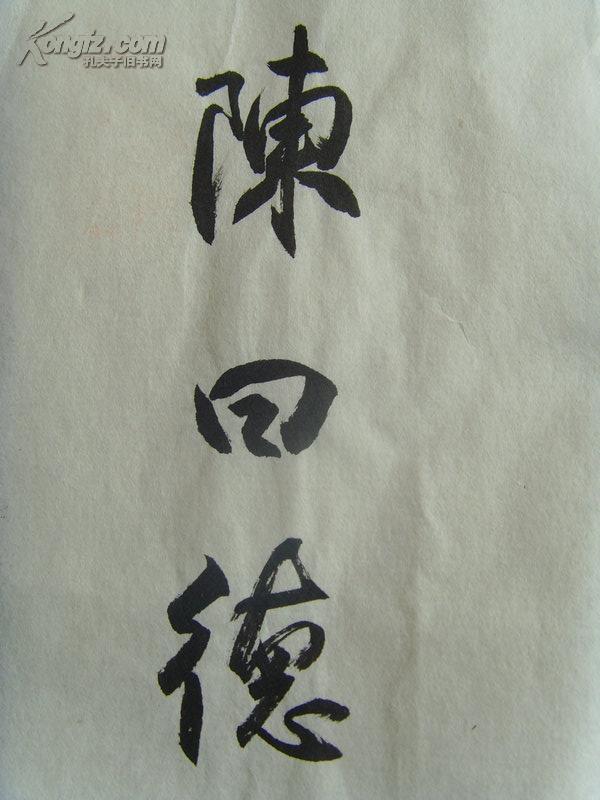 Kongfz.com
孔夫子旧书网
陳回德